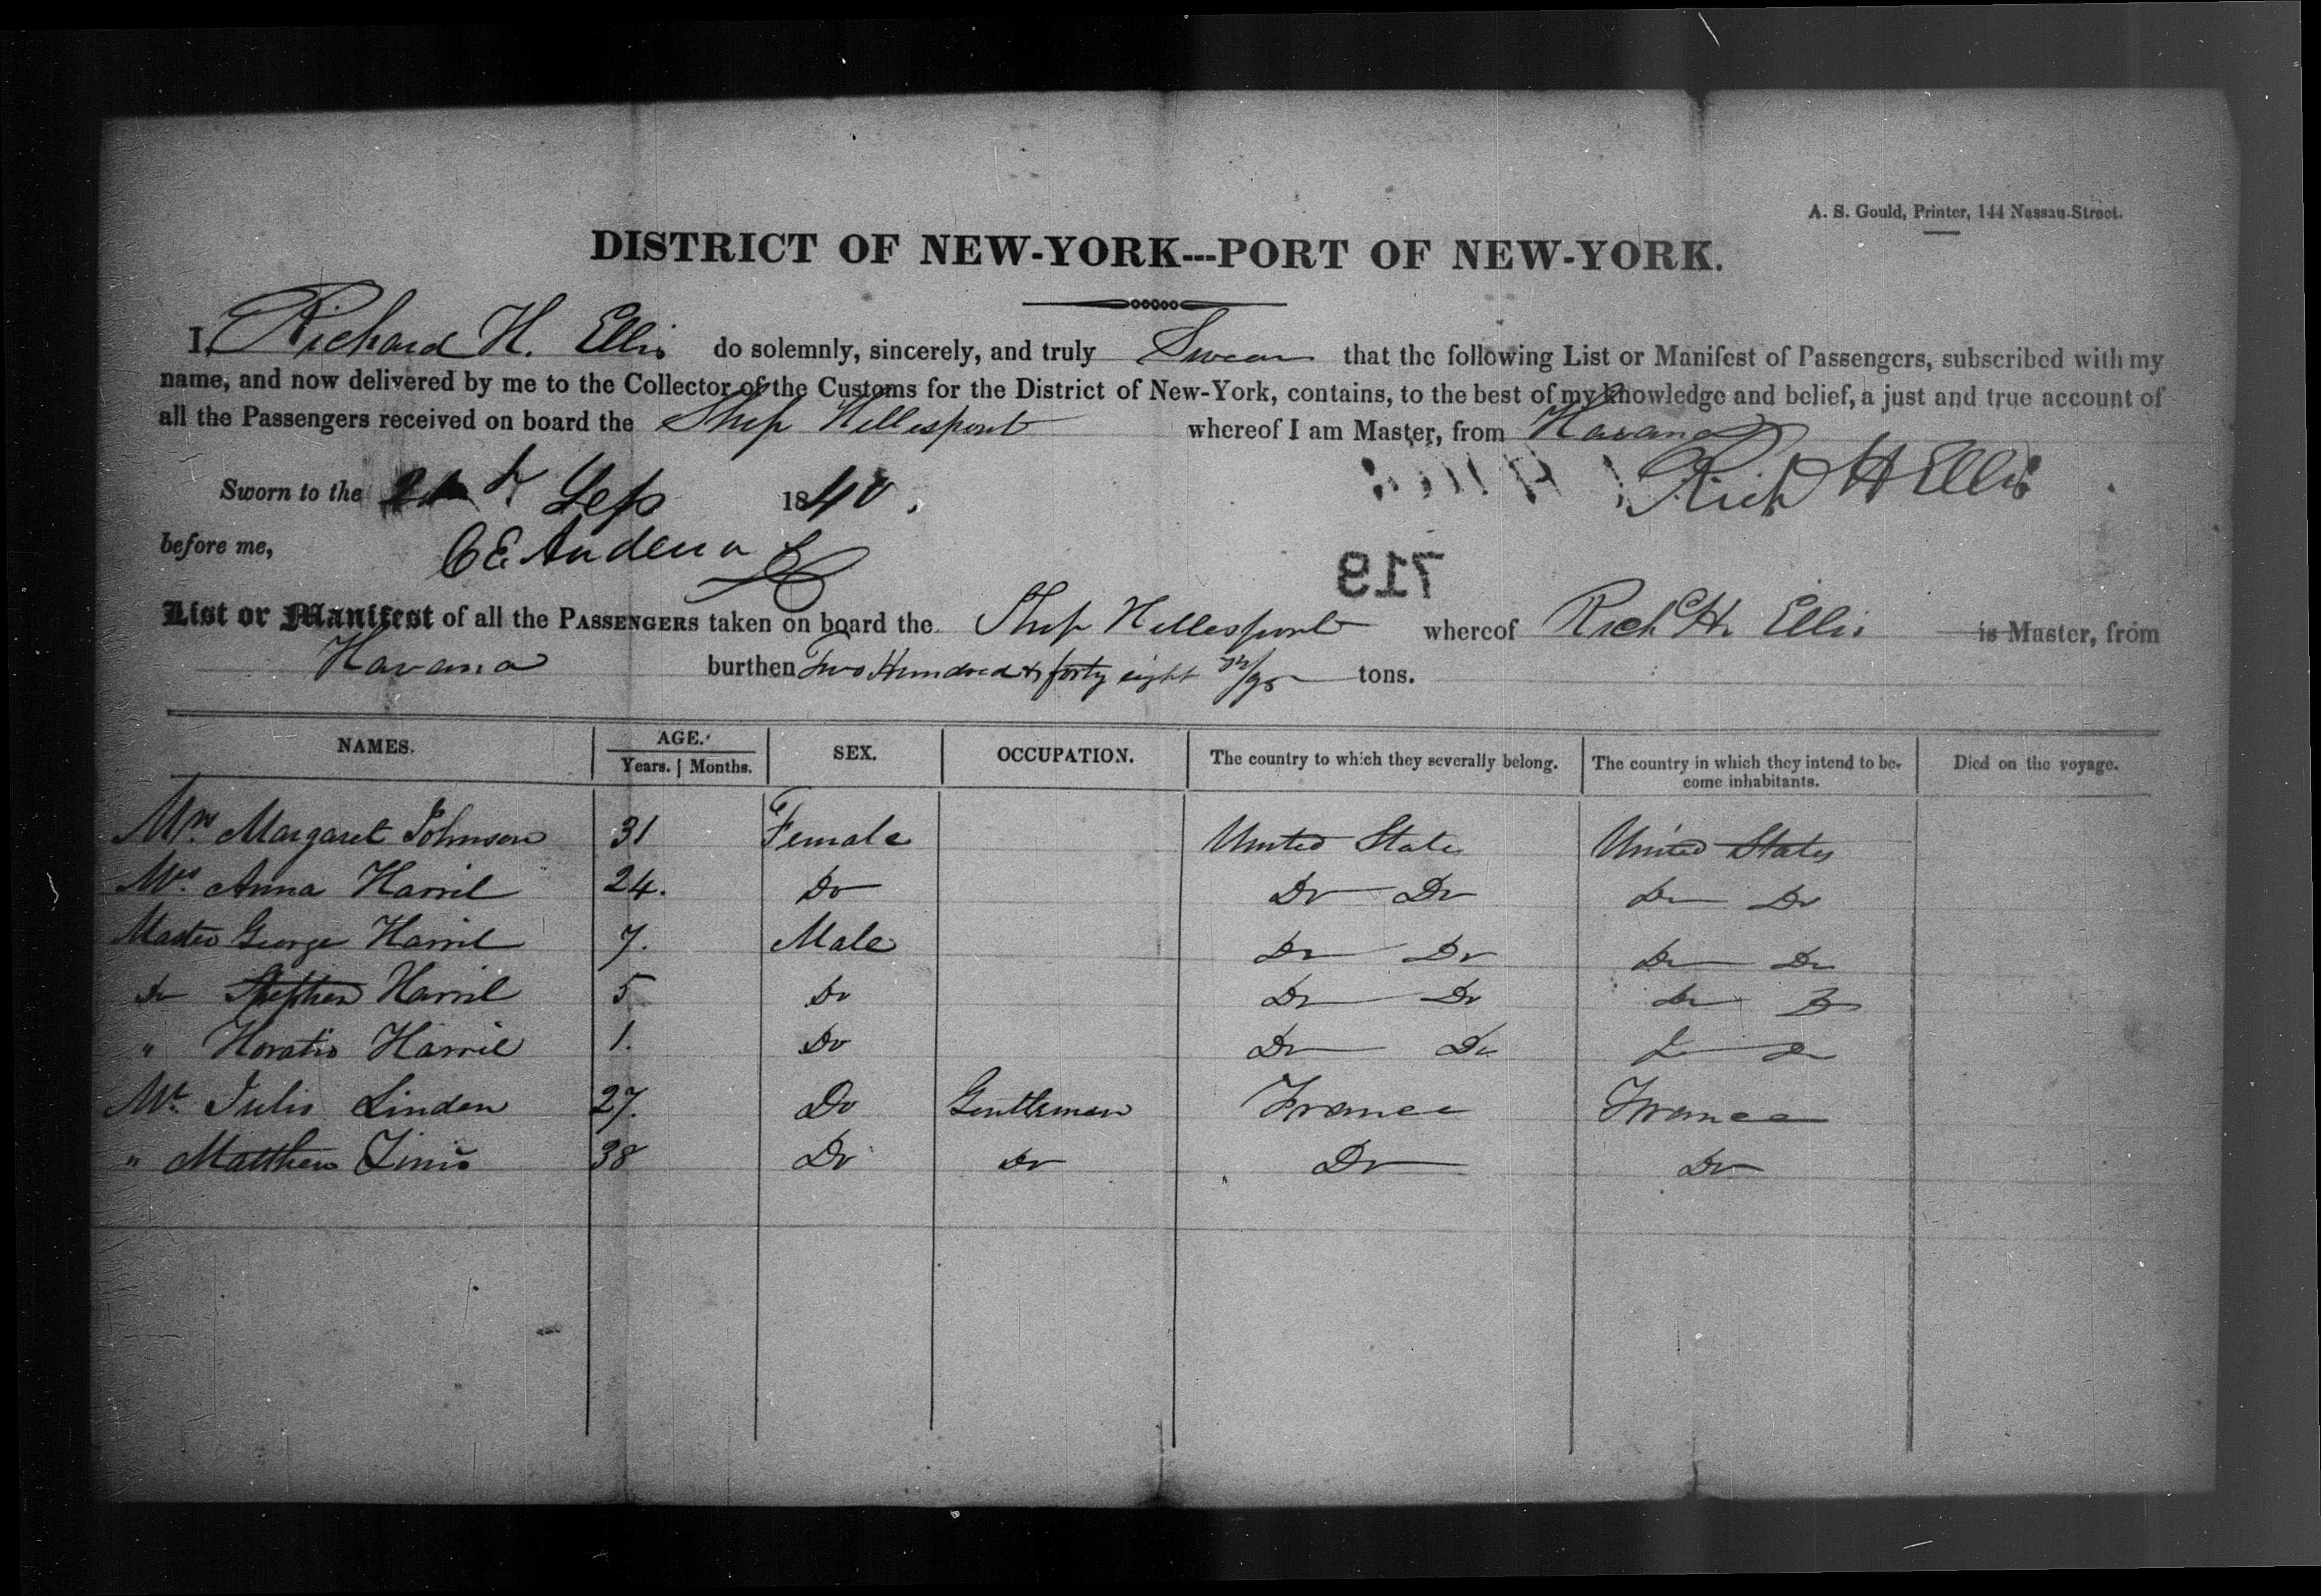 A. S. Gould, Printer, 144 Nassau-Street.
DISTRICT OF NEW-YORK---PORT OF NEW-YORK.
I, Richard H. Ellis do solemnly, sincerely, and truly Swear that the following List or Manifest of Passengers, subscribed with my
name, and now delivered by me to the Collector of the Customs for the District of New-York, contains, to the best of my knowledge and belief, a just and true account of
all the Passengers received on board the Ship Hellespont whereof I am Master, from Havana
Sworn to the Sep 1840. Rich H Ellis
before me, C E Anderson
719
List or Manifest of all the PASSENGERS taken on board the Ship Hellespont whereof Richd H. Ellis is Master, from
Havana burthen Two Hundred & forty eight /95 tons.
NAMES. AGE. SEX. OCCUPATION. The country to which they severally belong. The country in which they intend to be- Died on the voyage.
Years. | Months. come inhabitants.
Mrs Margaret Johnson 31 Female United States United States
Mrs. Anna Harril 24. Do Do Do Do Do
Master George Harril 7. Male Do Do Do Do
Do Stephen Harril 5 Do Do Do Do Do
" Horatio Harril 1. Do Do Do Do Do
Mr. Julis Linden 27. Do Gentleman France France
" Matthew 38 Do Do Do Do